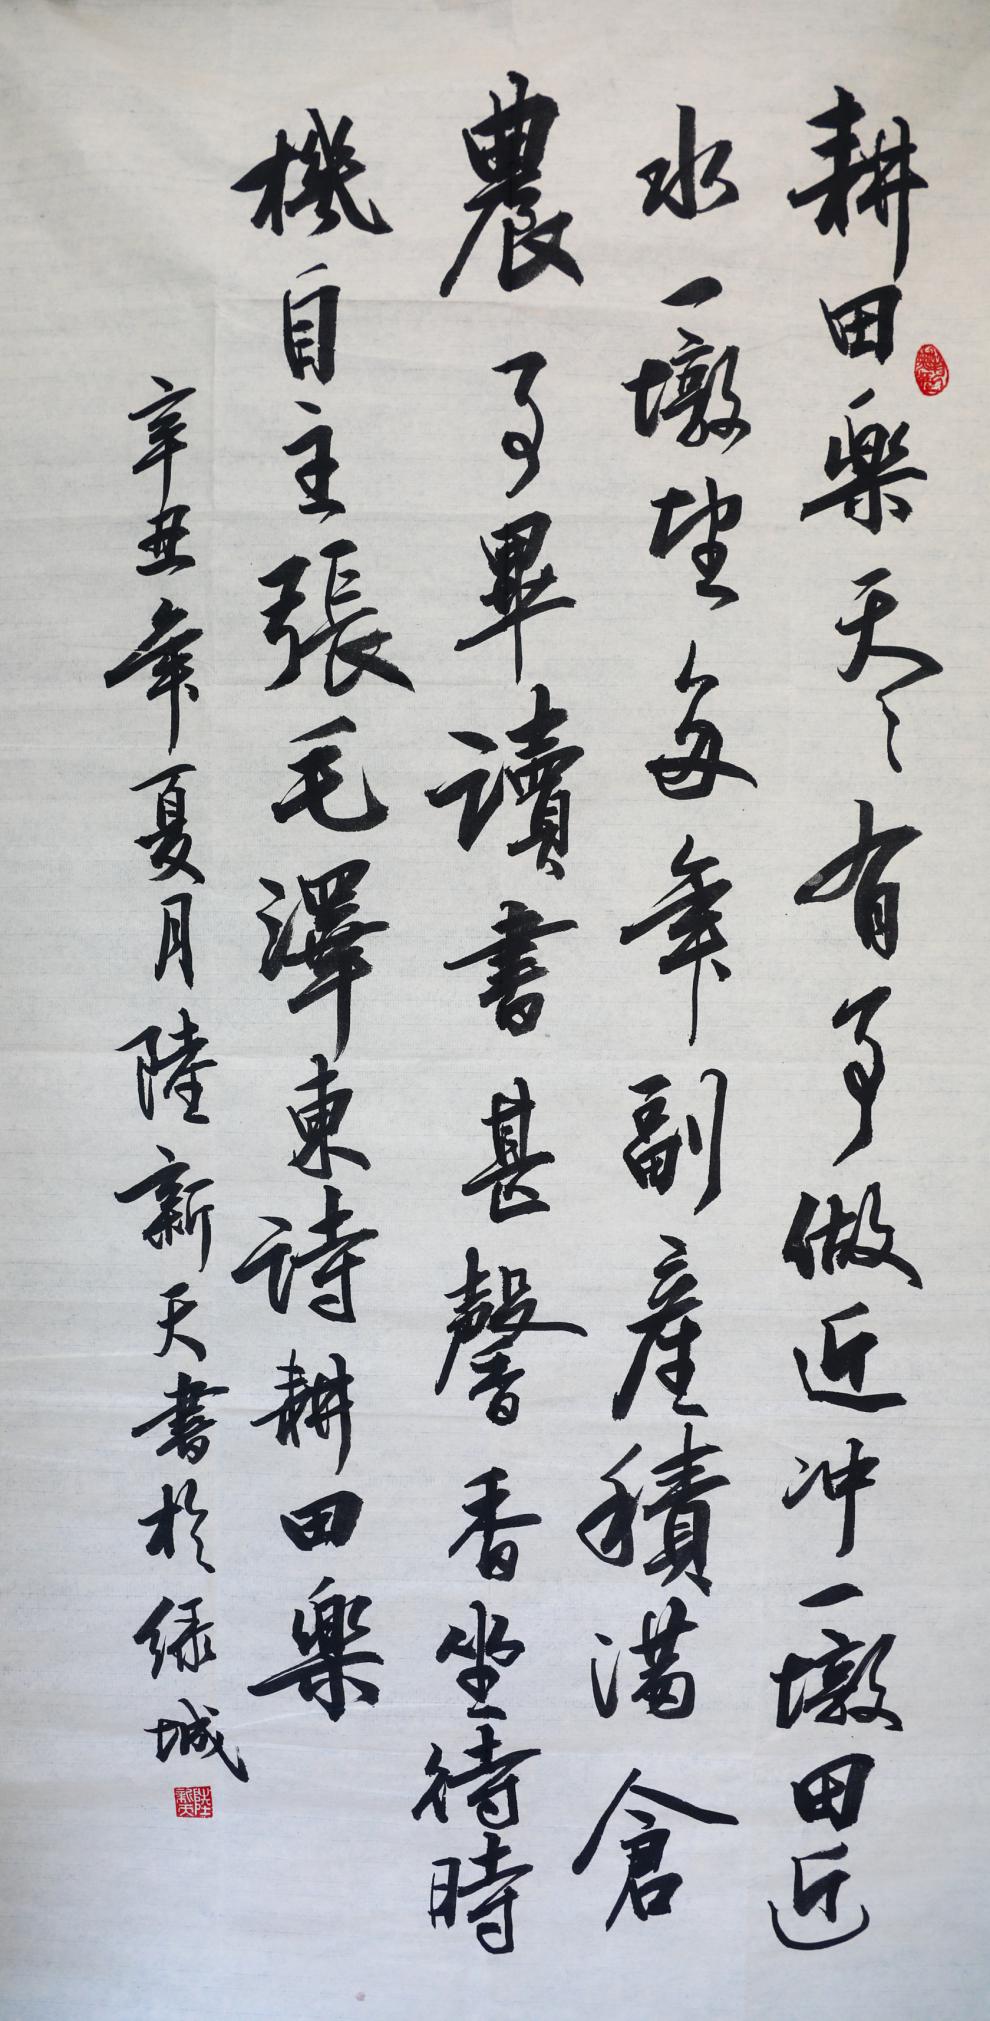 耕田樂天々有事做近冲一墩田近
水一墩墪每年副產積滿倉
農事畢讀書甚馨香坐待時
機自主張毛澤東詩耕田樂
辛丑年夏月陸新天書於绿城
陸新天